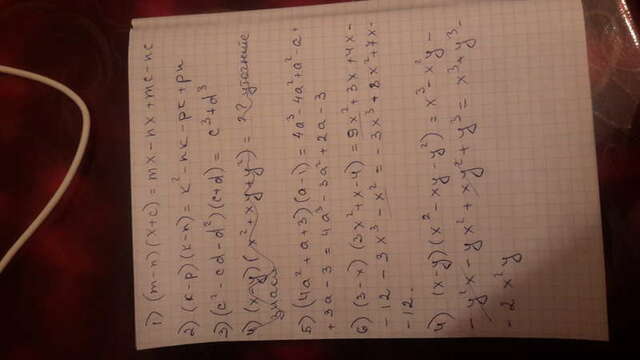 1) (m-n)(x+c) = mx-nx+mc-nc
2) (к-p)(к-n) = к²-nк-pк+pn
3) (c²-cd-d²)(c+d) = c³+d³
4) (x-y)(x²+xy+y²) = ?? уточните
знаси
5) (4a²+a+3)(a-1) = 4a³-4a²+a²-a+
+3a-3 = 4a³-3a²+2a-3
6) (3-x)(3x²+x-4) = 9x²+3x+4x-
-12-3x³-x² = -3x³+8x²+7x-
-12.
4) (x-y)(x²-xy-y²) = x³-x²y-
-y²x-yx²+xy²+y³ = x³+y³-
-2x²y